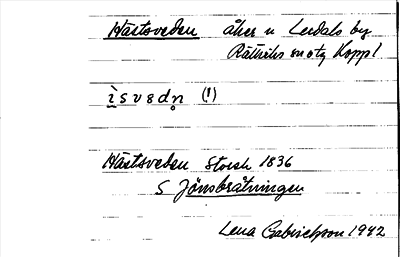 Hästsveden åker n Lerdals by
Rättviks sn otg Koppl
i s v e d n (!)
Hästsveden Storsk 1836
S Jönsbråtningen
Lena Gabrielsson 1942